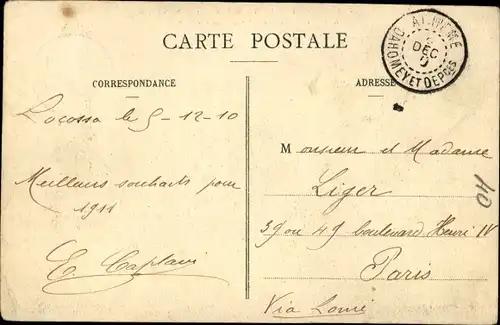 CARTE POSTALE
ATHIEME
DEC
DAHOMEY ET DEPCES
CORRESPONDANCE
ADRESSE
Locossa le 5-12-10
Meilleurs souhaits pour
1911
E. Caplain
Monsieur et Madame
Liger
39 ou 49 boulevard Henri IV
Paris
Via Lomé
40